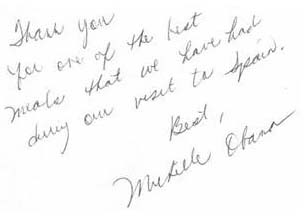 Thank you
for one of the best
meals that we have had
during our visit to Spain.
Best,
Michelle Obama